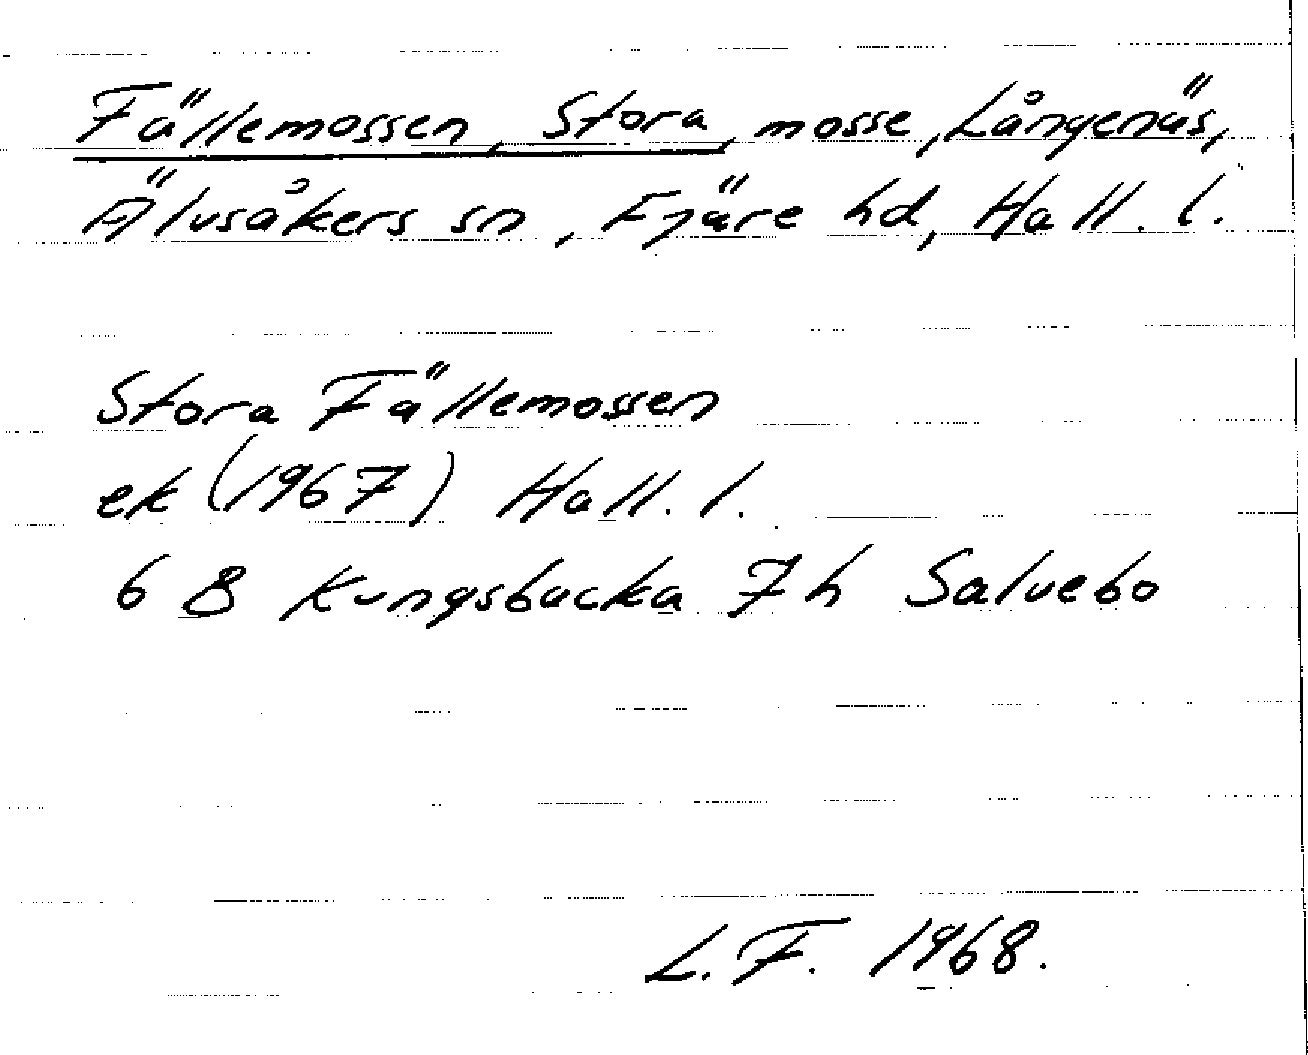 Fällemossen, Stora, mosse, Långenäs,
Älvsåkers sn, Fjäre hd, Hall. l.
Stora Fällemossen
ek (1967) Hall. l.
6 B Kungsbacka 7 h Salvebo
L. F. 1968.